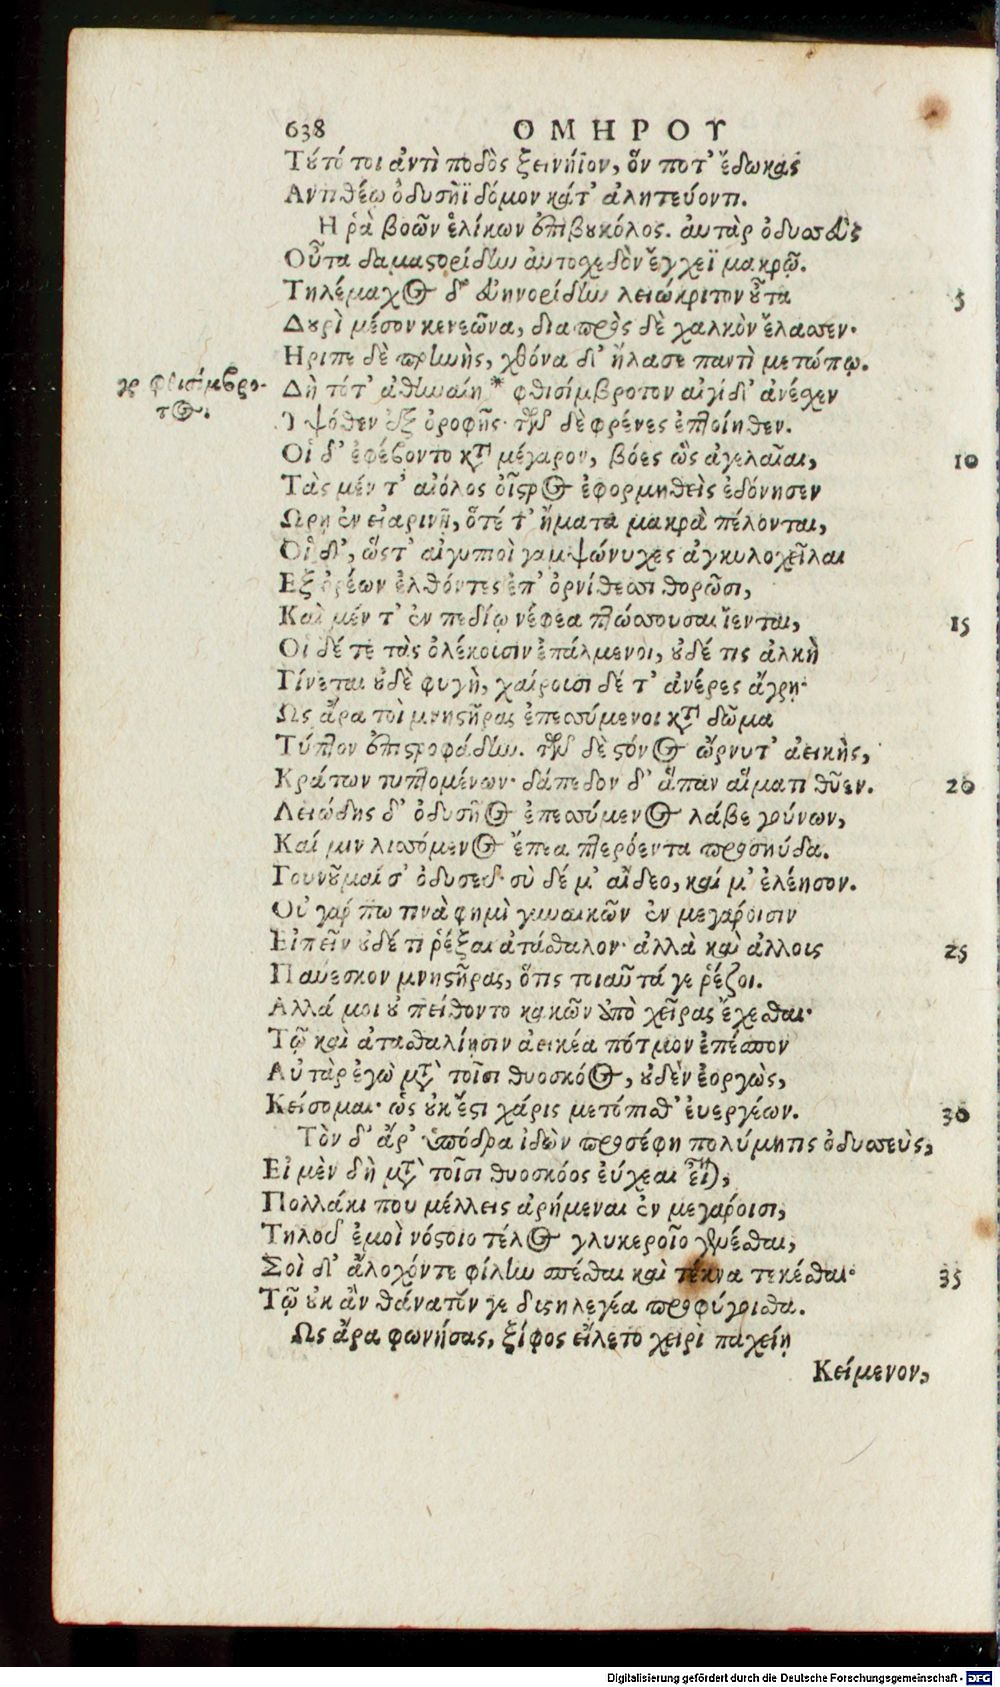 638 ΟΜΗΡΟΥ
Τȣ́τό τοι ἀντὶ ποδὸς ξεινήϊον, ὅν ποτ' ἔδωκας
Αντιθέῳ ὀδυσῆϊ δόμον κάτ' ἀλητεύοντι.
Η ῥὰ βοῶν ἑλίκων ἐπιβȣκόλος. ἀυτὰρ ὀδυσσεὺς
Οὖτα δαμαστορίδην ἀυτοσχεδὸν ἔγχεϊ μακρῷ.
Τηλέμαχος δ' ἐυηνορίδην λειώκριτον ȣ̓͂τα 5
Δȣρὶ μέσον κενεῶνα, δια πρὸς δὲ χαλκὸν ἔλασσεν·
Ηριπε δὲ πρηνὴς, χθόνα δ' ἤλασε παντὶ μετώπῳ.
γρ φθισίμβρο- Δὴ τότ' ἀθηναίη * φθισίμβροτον αἰγίδ' ἀνέσχεν
τος. Υψόθεν ἐξ ὀροφῆς· τῶν δὲ φρένες ἐπτοίηθεν.
Οἱ δ' ἐφέβοντο κατὰ μέγαρον, βόες ὣς ἀγελαῖαι, 10
Τὰς μέν τ' αἰόλος οἶστρος ἐφορμηθεὶς ἐδόνησεν
Ωρῃ ἐν εἰαρινῇ, ὅτέ τ' ἤματα μακρὰ πέλονται,
Οἱ δ', ὥςτ' αἰγυπιοὶ γαμψώνυχες ἀγκυλοχεῖλαι
Εξ ὀρέων ἐλθόντες ἐπ' ὀρνίθεσσι θορῶσι,
Καὶ μέν τ' ἐν πεδίῳ νέφεα πτώσσουσαι ἵενται, 15
Οἱ δέ τε τὰς ὀλέκοισιν ἐπάλμενοι, ȣ̓δέ τις ἀλκὴ
Γίνεται ȣ̓δὲ φυγὴ, χαίροισι δέ τ' ἀνέρες ἄγρῃ·
Ως ἄρα τοὶ μνηστῆρας ἐπεσσύμενοι κατὰ δῶμα
Τύπτον ἐπιστροφάδην. τῶν δὲ στόνος ὤρνυτ' ἀεικὴς,
Κράτων τυπτομένων· δάπεδον δ' ἅπαν αἵματι θῦεν. 20
Λειώδης δ' ὀδυσῆος ἐπεσσύμενος λάβε γούνων,
Καί μιν λισσόμενος ἔπεα πτερόεντα προσηύδα.
Γουνȣ͂μαί σ' ὀδυσεῦ· σὺ δέ μ' αἴδεο, καί μ' ἐλέησον.
Οὐ γάρ πω τινὰ φημὶ γυναικῶν ἐν μεγάροισιν
Εἰπεῖν ȣ̓δέ τι ῥέξαι ἀτάσθαλον· ἀλλὰ καὶ ἄλλοις 25
Παύεσκον μνηστῆρας, ὅτις τοιαῦτά γε ῥέζοι.
Αλλά μοι ȣ̓ πείθοντο κακῶν ὑπὸ χεῖρας ἔχεσθαι·
Τῷ καὶ ἀτασθαλίῃσιν ἀεικέα πότμον ἐπέσπον
Αὐτὰρ ἐγὼ μετὰ τοῖσι θυοσκόος, ȣ̓δὲν ἐοργὼς,
Κείσομαι· ὡς ȣ̓κ ἔστι χάρις μετόπισθ' ἐυεργέων. 30
Τὸν δ' ἄρ' ὑπόδρα ἰδὼν προσέφη πολύμητις ὀδυσσεὺς,
Εἰ μὲν δὴ μετὰ τοῖσι θυοσκόος εὔχεαι εἶναι,
Πολλάκι που μέλλεις ἀρήμεναι ἐν μεγάροισι,
Τηλοῦ ἐμοὶ νόστοιο τέλος γλυκεροῖο γενέσθαι,
Σοὶ δ' ἄλοχόν τε φίλην σπέσθαι καὶ τέκνα τεκέσθαι· 35
Τῷ ȣ̓κ ἂν θάνατόν γε δυσηλεγέα προφύγοισθα.
Ως ἄρα φωνήσας, ξίφος εἵλετο χειρὶ παχείῃ
Κείμενον,
Digitalisierung gefördert durch die Deutsche Forschungsgemeinschaft - DFG